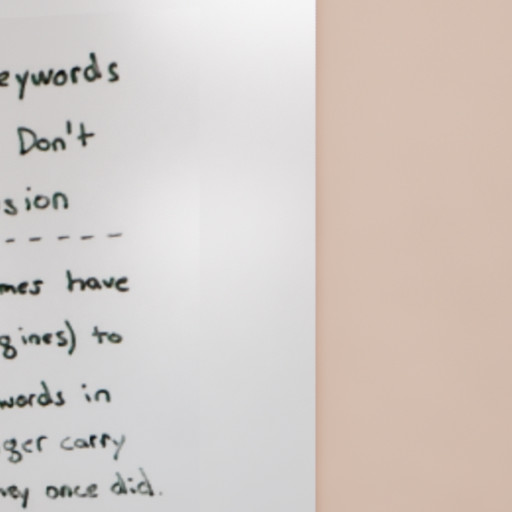 eywords
Don't
sion
- - - - - -
mes have
gines) to
words in
ger carry
hey once did.